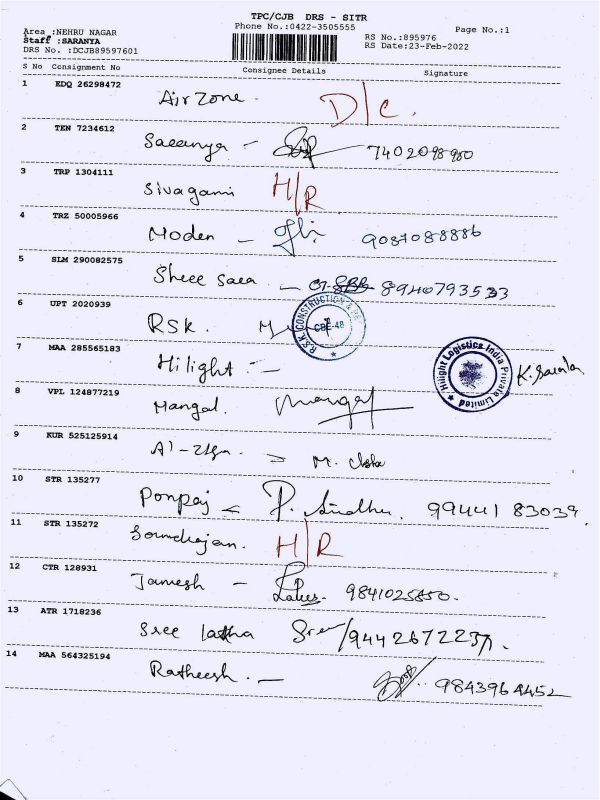 TPC/CJB DRS - SITR
Area :NEHRU NAGAR Phone No.:0422-3505555 Page No.:1
Staff :SARANYA RS No.:895976
DRS No. :DCJB89597601 RS Date:23-Feb-2022
S No Consignment No Consignee Details Signature
1 EDQ 26298472 Air Zone. D/C.
2 TEN 7234612 Saranya - 7402098980
3 TRP 1304111 Sivagami H/R
4 TRZ 50005966 Moden - 9087088886
5 SLM 290082575 Shree Saea - 8940793533
6 UPT 2020939 RSK. R.S.K. CONSTRUCTION CBE-48
7 MAA 285565183 Hilight :- Hilight Logistics India Private Limited
8 VPL 124877219 Mangal.
9 KUR 525125914
10 STR 135277 Ponpaj P. Sindhu. 9944183039.
11 STR 135272 H/R
12 CTR 128931 Jamesh - 9841025850.
13 ATR 1718236 Sree latha Sree/9442672237.
14 MAA 564325194 Ratheesh. - 9843964452